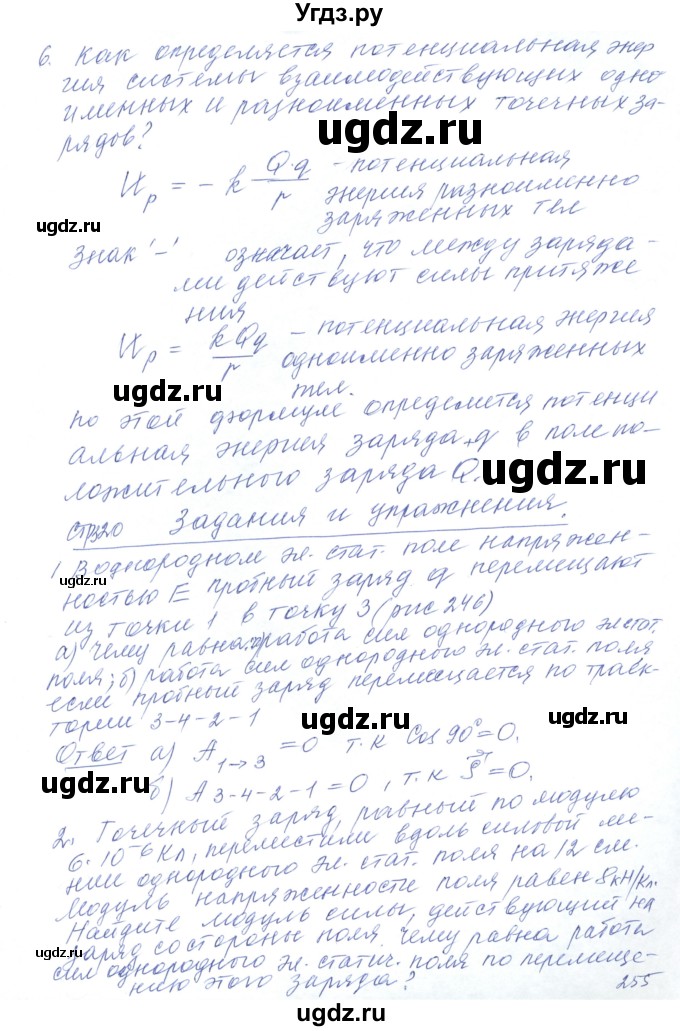 Угдз.ру
6. Как определяется потенциальная энер
гия системы взаимодействующих одно
именных и разноименных точечных за-
рядов?
ugdz.ru
Wp = - k Q·q/r - потенциальная
энергия разноименно
заряженных тел
ugdz.ru
Знак '-' означает, что между заряда-
ми действуют силы притяже
ния
Wp = kQq/r - потенциальная энергия
одноименно заряженных
тел.
ugdz.ru
По этой формуле определяется потенци
альная энергия заряда +q в поле по-
ложительного заряда Q.
ugdz.ru
стр320 Задания и упражнения.
1 В однородном эл. стат. поле напряжен-
ностью E пробный заряд q перемещают
ugdz.ru
из точки 1 в точку 3 (рис 246)
а) чему равна работа сил однородного эл стат.
поля; б) работа сил однородного эл. стат. поля
если пробный заряд перемещается по траек-
тории 3-4-2-1
ugdz.ru
Ответ а) A1→3 = 0 т.к Cos 90° = 0.
б) A 3-4-2-1 = 0, т.к S = 0.
ugdz.ru
2. Точечный заряд, равный по модулю
6·10⁻⁶ Кл, переместили вдоль силовой ли-
нии однородного эл. стат. поля на 12 см.
Модуль напряженности поля равен 8кН/Кл.
Найдите модуль силы, действующий на
заряд со стороны поля. Чему равна работа
сил однородного эл. статич. поля по перемеще-
нию этого заряда?
ugdz.ru
ugdz.ru
255